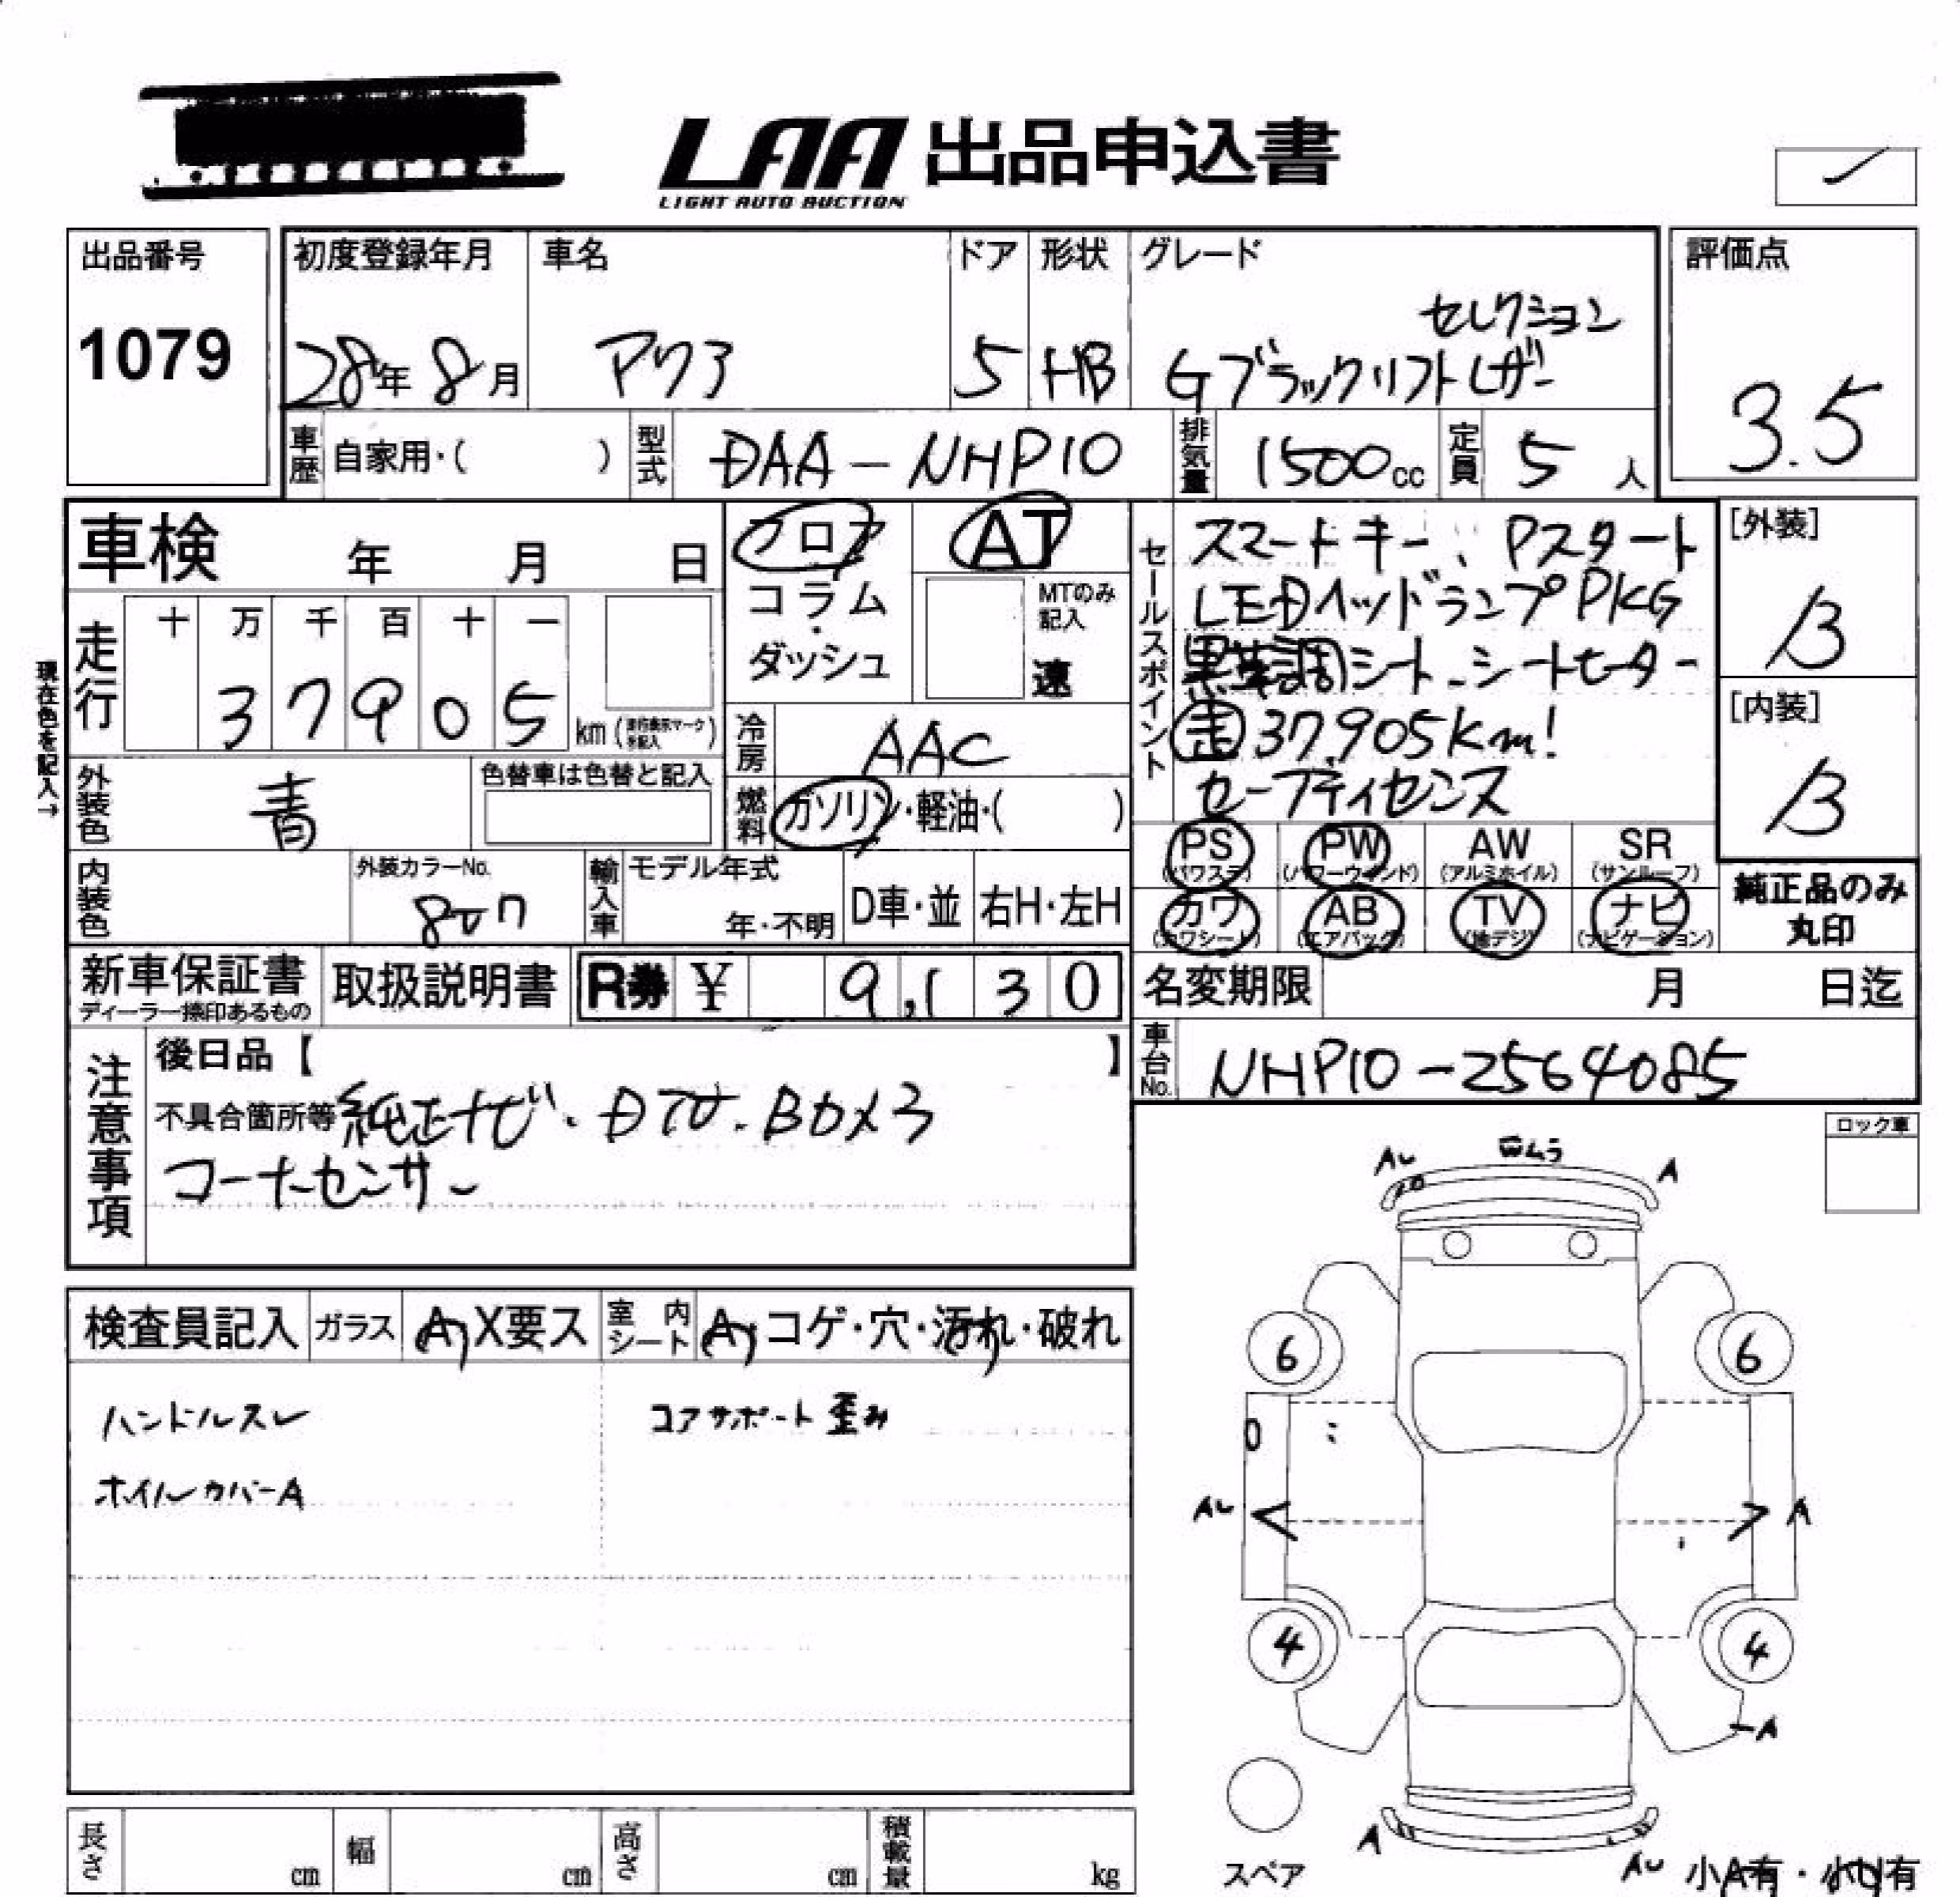 LAA 出品申込書
LIGHT AUTO AUCTION
出品番号
1079
初度登録年月
28年 8月
車名
アクア
ドア
5
形状
HB
グレード
セレクション
Gブラックソフトレザー
評価点
3.5
車歴 自家用・( )
型式 DAA-NHP10
排気量 1500cc
定員 5人
車検 年 月 日
フロア
コラム
・
ダッシュ
AT
MTのみ
記入
速
セールスポイント
スマートキー、Pスタート
LEDヘッドランプPKG
黒革調シート、シートヒーター
走 37,905Km!
セーフティセンス
[外装]
B
[内装]
B
現在色を記入→
走行
十 万 千 百 十 一
3 7 9 0 5 km
冷房 AAC
外装色 青
色替車は色替と記入
燃料 ガソリン・軽油・( )
PS (パワステ)
PW (パワーウィンド)
AW (アルミホイル)
SR (サンルーフ)
カワ (カワシート)
AB (エアバック)
TV (地デジ)
ナビ (ナビゲーション)
純正品のみ
丸印
内装色
外装カラーNo.
8T7
輸入車
モデル年式
年・不明
D車・並
右H・左H
新車保証書
ディーラー捺印あるもの
取扱説明書
R券 ¥ 9,130
名変期限 月 日迄
車台No. NHP10-2564085
注意事項
後日品【 】
不具合箇所等 純正ナビ、DTV、BOX3
コーナーセンサー
ロック車
検査員記入
ガラス A X要ス
室内シート A・コゲ・穴・汚れ・破れ
ハンドルスレ
コアサポート歪み
ホイルカバーA
AU
ムラ
A
6
6
AU
A
4
4
A
A
AU
スペア
小A有・小U有
長さ cm
幅 cm
高さ cm
積載量 kg